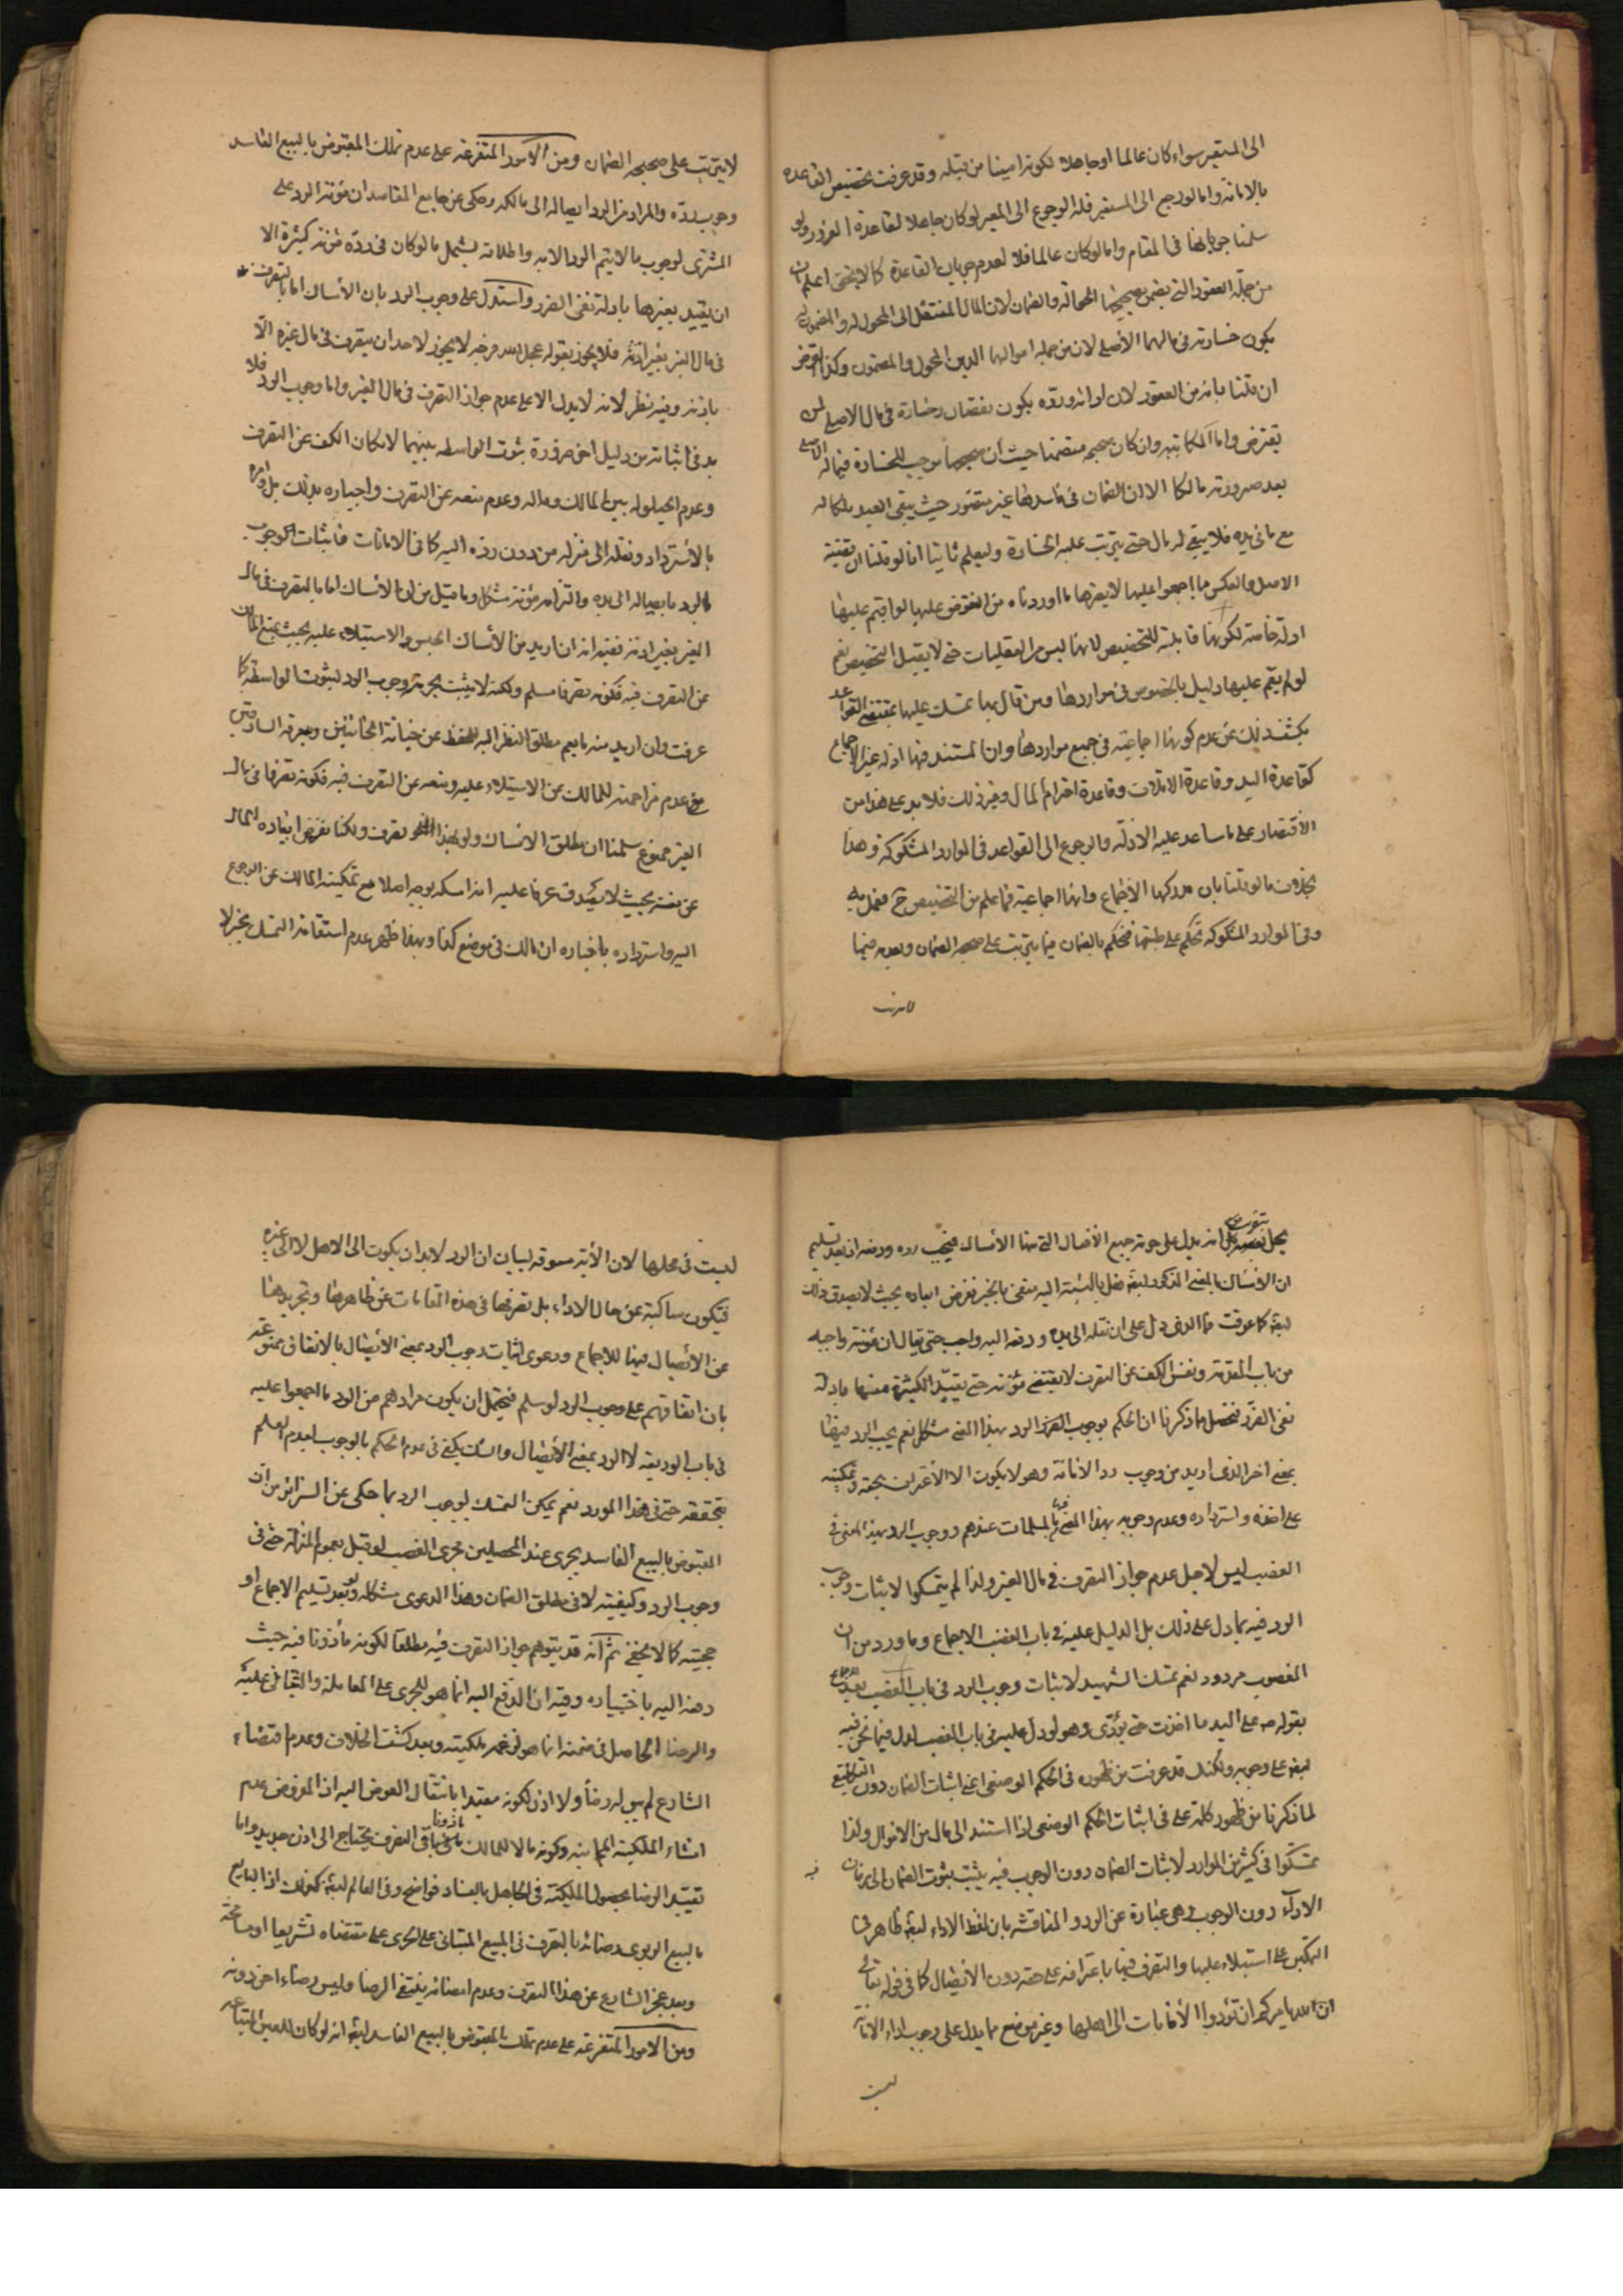 الى المستعير سواء كان عالما او جاهلا لكونه امينا من قبله وقد عرفت تخصيص القاعدة
بالامانة واما لو رجع الى المستعير فله الرجوع الى المعير لو كان جاهلا لقاعدة الغرور ولو
سلمنا جريانها في المقام واما لو كان عالما فلا لعدم جريان القاعدة كما لا يخفى اعلم ان
من جملة العقود التي يضمن بصحيحها الحوالة والضمان لان المال المنتقل الى المحول له والمضمون له
يكون خسارته في مالهما الأصلي لان من جملة اموالهما الدين المحول والمضمون وكذا القرض
ان قلنا بانه من العقود لان ادائه ورده يكون نقصان وخسارة في مال الاصلي لمن
يقترض واما المكاتبة وان كان صحيحه متضمنا حيث أن صحيحها موجب للخسارة في ماله الاصلي
بعد صيرورته مالكا الا ان الضمان في فاسدها غير متصور حيث يبقى العبد ملكا له
مع ما في يده فلا يبقى له مال حتى يترتب عليه الخسارة وليعلم ثانيا انا لو قلنا ان قضية
الاصل والعكس مما اجمعوا عليها لا يضرها ما اوردناه من النقوض عليها لو اقيم عليها
ادلة خاصة لكونها قابلة للتخصيص لانها ليس من العقليات حتى لا يقبل التخصيص نعم
لو لم يقم عليها دليل بالخصوص في مواردها ومن قال بها تمسك عليها بمقتضى القواعد
يكشف ذلك عن عدم كونها اجماعية في جميع مواردها وان المستند فيها ادلة غير الاجماع
كقاعدة اليد وقاعدة الاتلاف وقاعدة احترام المال وغير ذلك فلا بد على هذا من
الاقتصار على ما ساعد عليه الادلة والرجوع الى القواعد في الموارد المشكوكة وهذا
بخلاف ما لو قلنا بان مدركها الاجماع وانها اجماعية فما علم من التخصيص ح فنعمل به
وفي الموارد المشكوكة نحكم على طبقها فنحكم بالضمان فيما يترتب على صحيحه الضمان وبعدمه فيما
لا يترتب
لا يترتب على صحيحه الضمان ومن الامور المتفرعة على عدم تملك المقبوض بالبيع الفاسد
وجوب رده والمراد من الرد ايصاله الى مالكه وحكى عن جامع المقاصد ان مؤنة الرد على
المشترى لوجوب ما لا يتم الرد الا به واطلاقه يشمل ما لو كان في رده مؤنة كثيرة الا
ان يقيد بغيرها بادلة نفي الضرر واستدل على وجوب الرد بان الأمساك اما بالتصرف
في مال الغير بغير اذنه فلا يجوز بقوله عجل الله فرجه لا يجوز لاحد ان يتصرف في مال غيره الّا
باذنه وفيه نظر لانه لا يدل الا على عدم جواز التصرف في مال الغير واما وجوب الرد فلا
بد في اثباته من دليل اخر ضرورة ثبوت الواسطة بينهما لامكان الكف عن التصرف
وعدم الحيلولة بين المالك وماله وعدم منعه عن التصرف واخباره بذلك بل وامره
بالأسترداد ونقله الى منزله من دون رده اليه كما في الامانات فاثبات الوجوب
بالرد بايصاله الى يده والتزام مؤنته مشكل وما قيل من ان الأمساك اما بالتصرف في مال
الغير بغير اذنه ففيه انه ان اريد من الأمساك الحبس والاستيلاء عليه بحيث يمنع المالك
عن التصرف فيه فكونه تصرفا مسلم ولكنه لا يثبت بحرمته وجوب الرد لثبوت الواسطة كما
عرفت وان اريد منه ما يعم مطلق النظر اليه للحفظ عن خيانة الخائنين وسرقة السارقين
مع عدم مزاحمته للمالك عن الاستيلاء عليه ومنعه عن التصرف فيه فكونه تصرفا في مال
الغير ممنوع سلمنا ان مطلق الامساك ولو بهذا النحو تصرف ولكنا نفرض ابعاده المال
عن نفسه بحيث لا يصدق عرفا عليه انه امسكه بوجه اصلا مع تمكينه المالك عن الرجوع
اليه واسترداده باخباره ان مالك في موضع كذا وبهذا ظهر عدم استقامة التمسك بخبر لا
يحل بتقريب انه يدل على حرمة جميع الأفعال التي منها الأمساك فيجب رده ودفعه اذ بعد تسليم
ان الأمساك بالمعنى المذكور ايضا فعل بالنسبة اليه منفى بالخبر نفرض ابعاده بحيث لا يصدق ذلك
ايضا كما عرفت فما الذي دل على ان نقله الى يده ودفعه اليه واجب حتى يقال ان مؤنته واجبة
من باب المقدمة ونفس الكف عن التصرف لا يقتضى مؤنته حتى يقيّد الكثيرة منها بادلة
نفى الضرر فتحصل مما ذكرنا ان الحكم بوجوب الرد بهذا المعنى مشكل نعم يجب الرد فيها
بمعنى اخر الذي اريد من وجوب رد الأمانة وهو لا يكون الا الأعتراف بحقه وتمكينه
على اخذه واسترداده وعدم وجوبه بهذا المعنى من المسلمات عندهم ووجوب الرد بهذا المعنى في
الغصب ليس لاجل عدم جواز التصرف في مال الغير ولذا لم يتمسكوا لاثبات وجوب
الرد فيه بما دل على ذلك بل الدليل عليه في باب الغصب الاجماع وما ورد من ان
المغصوب مردود نعم تمسك الشهيد لاثبات وجوب الرد في باب الغصب بعد الاجماع
بقوله ص على اليد ما اخذت حتى تؤدى وهو لو دل عليه في باب الغصب لدل فيما نحن فيه
ايضا على وجوبه ولكنك قد عرفت من ظهوره في الحكم الوضعي اعنى اثبات الضمان دون التكليفي
لما ذكرنا من ظهور كلمة على في اثبات الحكم الوضعي اذا استند الى مال من الاموال ولذا
تمسكوا في كثير من الموارد لاثبات الضمان دون الوجوب فيه يثبت ثبوت الضمان الى زمان
الاداء دون الوجوب وهي عبارة عن الرد والمناقشة بان لفظ الاداء ايضا ظاهر في
التمكين على استيلاء عليها والتصرف فيها باعترافه على حقه دون الأيصال كما في قوله تعالى
ان الله يامركم ان تؤدوا الأمانات الى اهلها وغير موضع مما يدل على وجوب اداء الامانة
ليست
ليست في محلها لان الأية مسوقة لبيان ان الرد لا بد ان يكون الى الاهل لا الى غيره
فتكون ساكتة عن حال الاداء بل نصرفها في هذه المقامات عن ظاهرها وتجريدها
عن الأيصال فيها للاجماع ودعوى اثبات وجوب الرد بمعنى الأيصال بالاتفاق ممنوعة
بان اتفاقهم على وجوب الرد لو سلم فيحتمل ان يكون مرادهم من الرد ما اجمعوا عليه
في باب الوديعة لا الرد بمعنى الأيصال والشك يكفى في عدم الحكم بالوجوب لعدم العلم
بتحققه حتى في هذا المورد نعم يمكن التمسك لوجوب الرد بما حكى عن السرائر من ان
المقبوض بالبيع الفاسد يجرى عند المحصلين مجرى الغصب لو قيل بعموم المنزلة حتى في
وجوب الرد وكيفيته لا في مطلق الضمان وهذا الدعوى مشكلة ولو بعد تسليم الاجماع او
حجيته كما لا يخفى ثم انه قد يتوهم جواز التصرف فيه مطلقا لكونه مأذونا فيه حيث
دفعه اليه باختياره وفيه ان الدفع اليه انما هو للجرى على المعاملة والبقاء عليه
والرضا الحاصل في ضمنه انما هو لزعمه ملكيته وبعد كشف الخلاف وعدم امضاء
الشارع لم يبق له رضأ ولا اذن لكونه مقيدا بانتقال العوض اليه اذ المفروض عدم
انشاء الملكية المجانية وكونه مالا للمالك ماذونا في التصرف يحتاج الى اذن جديد واما
تقييد الرضا بحصول الملكية في الجاهل بالفساد فواضح وفي العالم ايضا كذلك اذ البايع
بالبيع الربوي رضائه بالتصرف في المبيع المبتنى على الجرى على مقتضاه تشريعا او مسامحة
وبعد حجز الشارع عن هذا التصرف وعدم امضائه ينتفى الرضا وليس رضاء اخر دونه
ومن الامور المتفرعة على عدم تملك المقبوض بالبيع الفاسد ايضا انه لو كان للعين المبتاعة